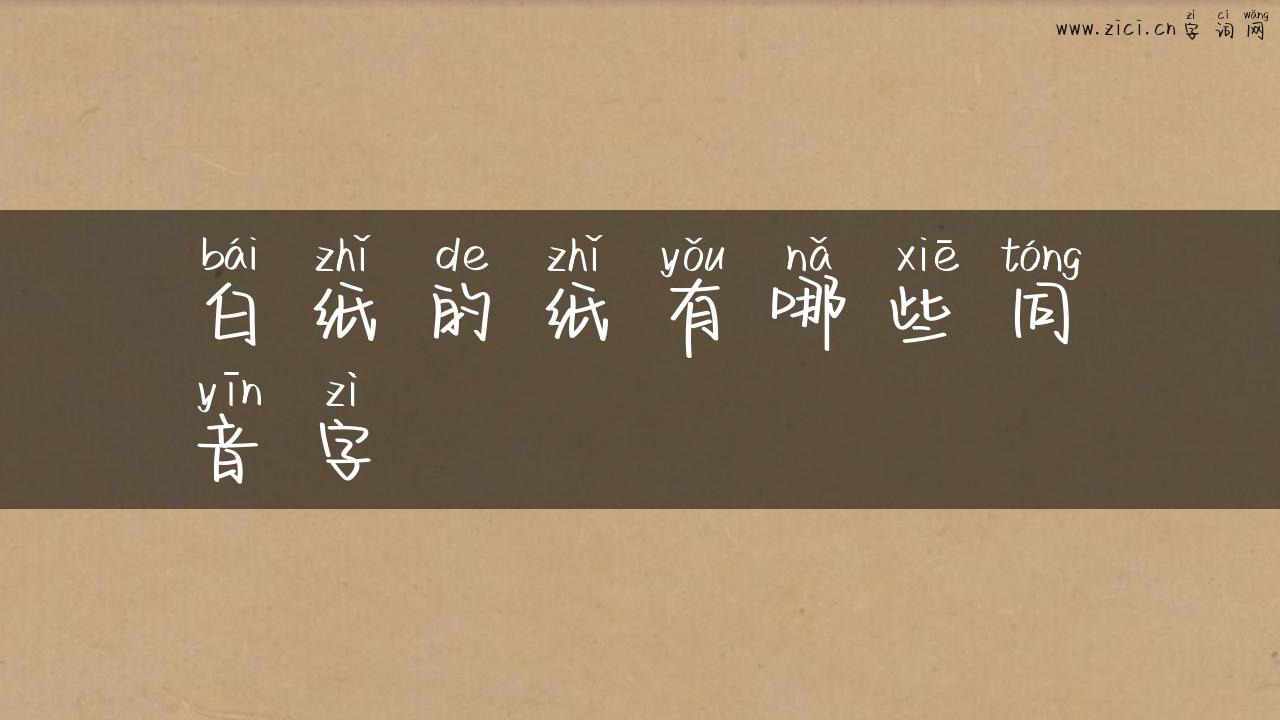 zì cí wǎng
www.zici.cn 字词网
bái zhǐ de zhǐ yǒu nǎ xiē tóng
白纸的纸有哪些同
yīn zì
音字